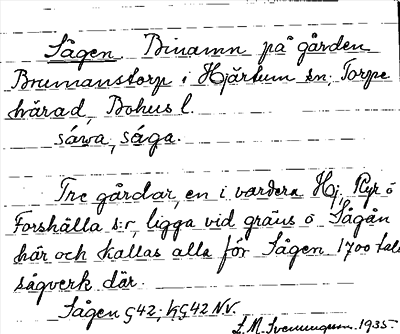 Sågen. Binamn på gården
Brumanstorp i Hjärtum sn, Torpe
härad, Bohus l.
såwa, såga.
Tre gårdar, en i vardera Hj, Ryr o
Forshälla s:r, ligga vid gräns o Sågån
här och kallas alla för Sågen 1700 tal
sågverk där.
Sågen G42; HG42 N.V.
L. M. Svenungsson. 1935-